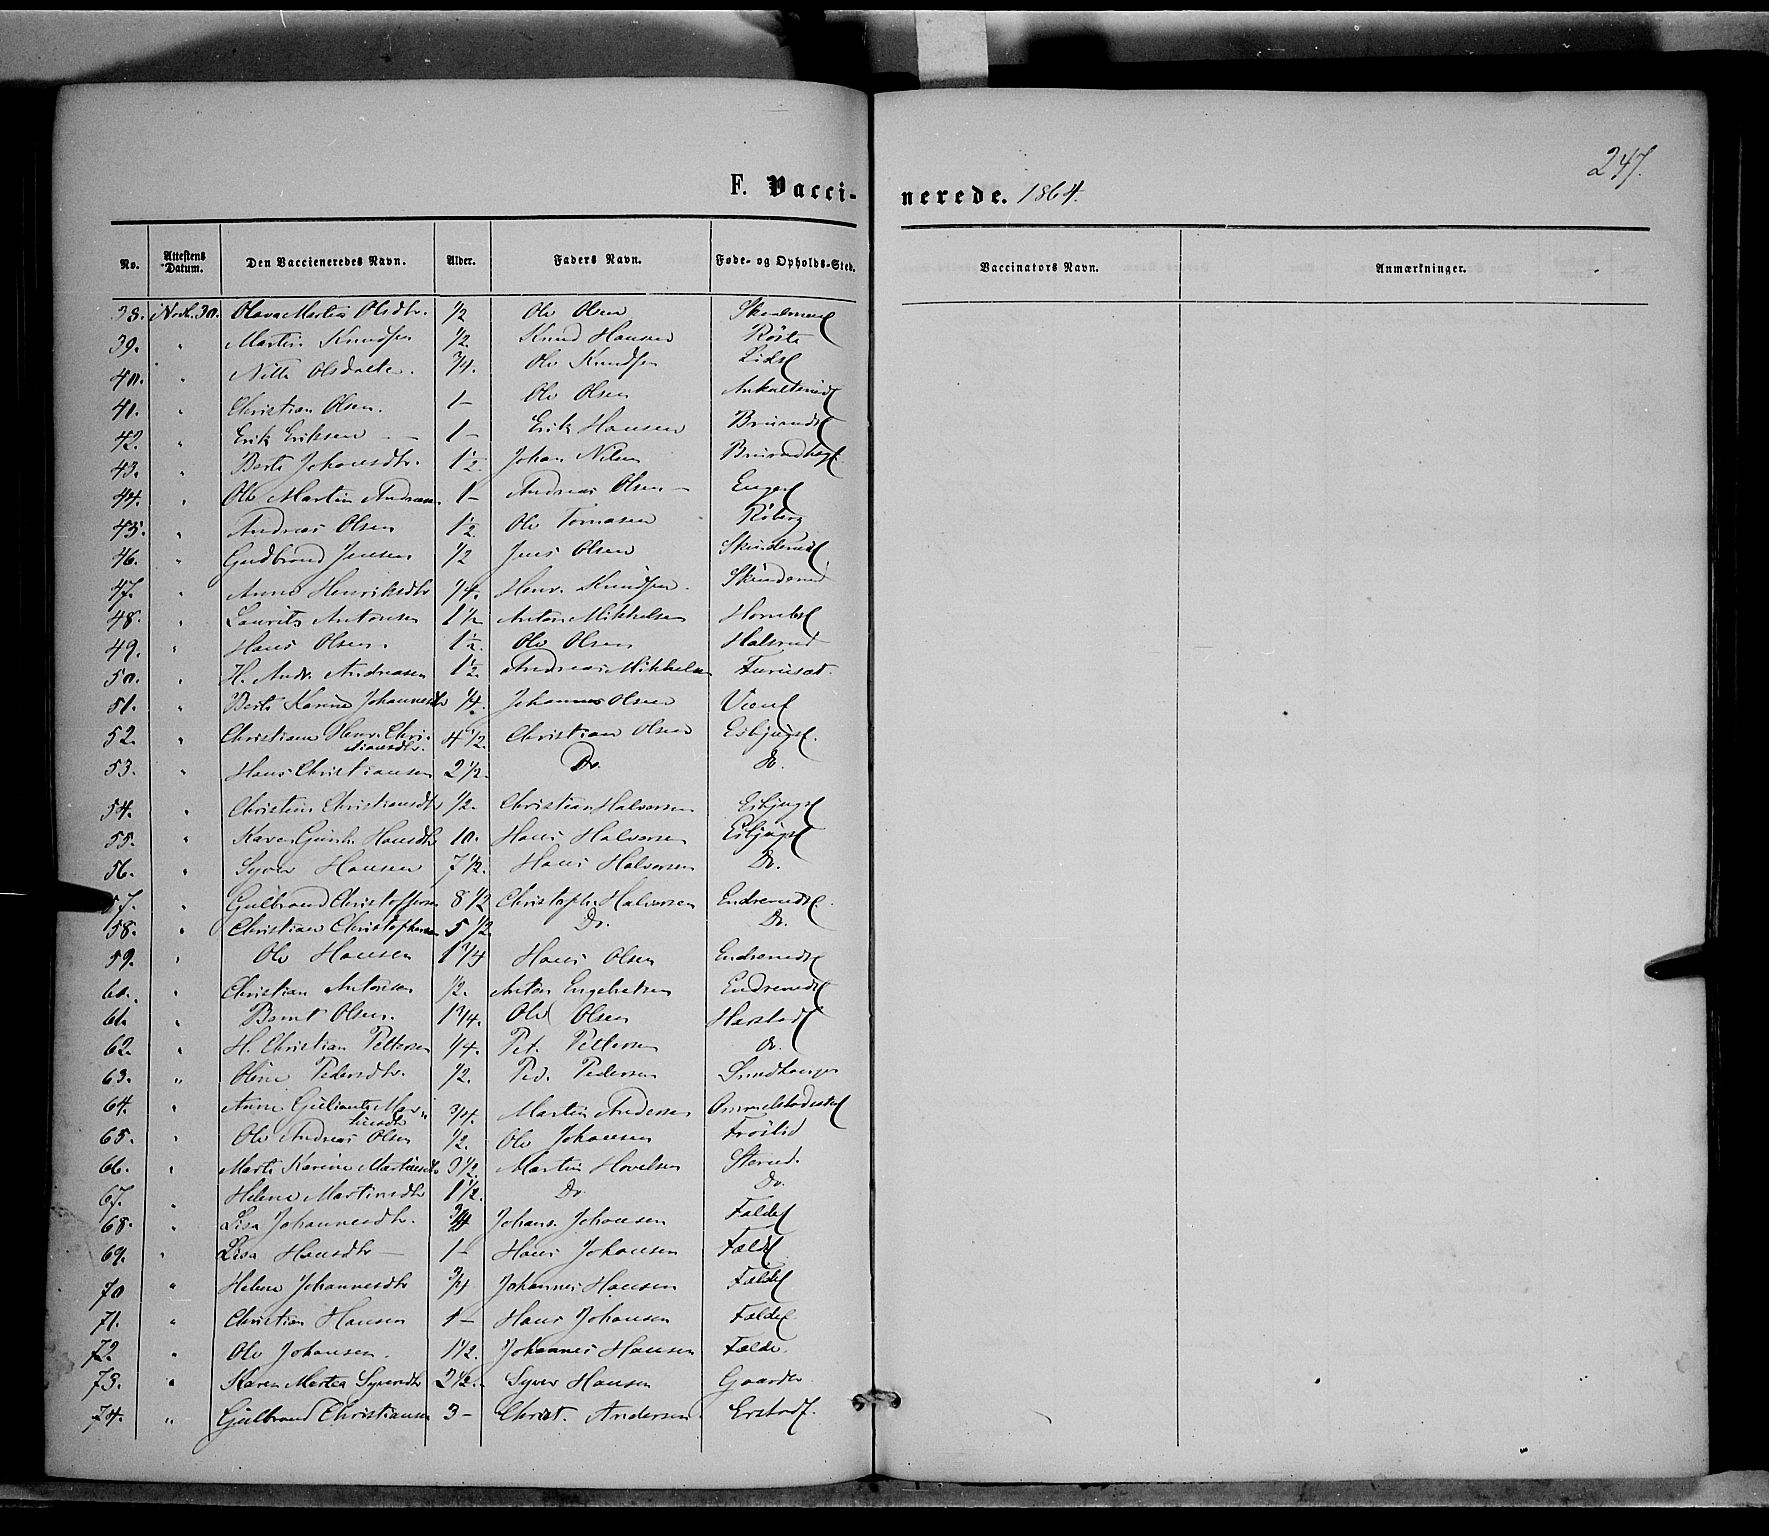 247.
F. Vaccinerede. 1864.
No. Attestens Datum. Den Vaccieneredes Navn. Alder. Faders Navn. Føde- og Opholds-Sted. Vaccinators Navn. Anmærkninger.
38. Novb. 30. Olava Martin Olsdtr. 1/2 Ole Olsen
39. " Martin Knudsen 1/2. Knud Hansen Röste
40. " Nille Olsdatter. 3/4. Ole Knudsen Lidse
41. " Christian Olsen. 1 – Ole Olsen
42. " Erik Eriksen – 1 – Erik Hansen
43. " Berte Johansdtr. 1 1/2. Johan Nilsen
44. " Ole Martin Andreasen 1 – Andreas Olsen – Enger
45. " Andreas Olsen 1 1/2. Ole Tomasen Röberg
46. " Gudbrand Jensen 1/2 Jens Olsen Skinderud
47. " Anne Henriksdtr 1/4. Henr. Knudsen. Skinderud
48. " Laurits Antonsen 1 1/2 Anton Mikkelsen
49. " Hans Olsen. 1 1/2. Ole Olsen Halsrud
50. " H. Andr. Andreasen 1 1/2 Andreas Mikkelsen Furuset.
51. " Berte Karine Johannesdtr 1/4. Johannes Olsen
52. " Christiane Henr. Christiansdtr. 4 1/2. Christian Olsen Esbjuge.
53. " Hans Christiansen 2 1/2. Do. do.
54. " Christine Christiansdtr 1/2. Christian Halvorsen Esbjuge
55. " Karen Hansdtr 10. Hans Halvorsen Esbjuge
56. " Syver Hansen 7 1/2. Hans Halvorsen Do.
57. " Gulbrand Christoffersen 8 1/2 Christopher Halvorsen Endrerud
58. " Christian Christophersen 5 1/2 Do. Do.
59. " Ole Hansen 1 3/4 Hans Olsen Endrerud
60. " Christian Antonsen 1/2. Anton Engebretsen Endrerud
61. " Bernt Olsen. 1 3/4. Ole Olsen Harstad
62. " H. Christian Pettersen 1/4. Pet. Pettersen do.
63. " Oline Pedersdtr. 1/2. Ped. Pedersen
64. " Anne Guliante Martinsdtr 3/4. Martin Andersen Ommelstadeie
65. " Ole Andreas Olsen 1/2. Ole Johansen Fröslid
66. " Marte Karine Martinsdtr 3 1/2. Martin Hovelsen Sterud.
67. " Helene Martinsdtr 1 1/2. Do Do.
68. " Lisa Johannesdtr. 3/4 Johans. Johansen Falde
69. " Lisa Hansdtr – 1 – Hans Johansen Falde
70 " Helene Johannesdtr 3/4 Johannes Hansen Falde
71. " Christian Hansen 1 – Hans Johansen Falde
72. " Ole Johansen. 1 1/2. Johannes Hansen Falde.
73. " Karen Martea Syversdtr 2 1/2. Syver Hansen Gaarder
74. " Gulbrand Christiansen 3 – Christ. Andersen.